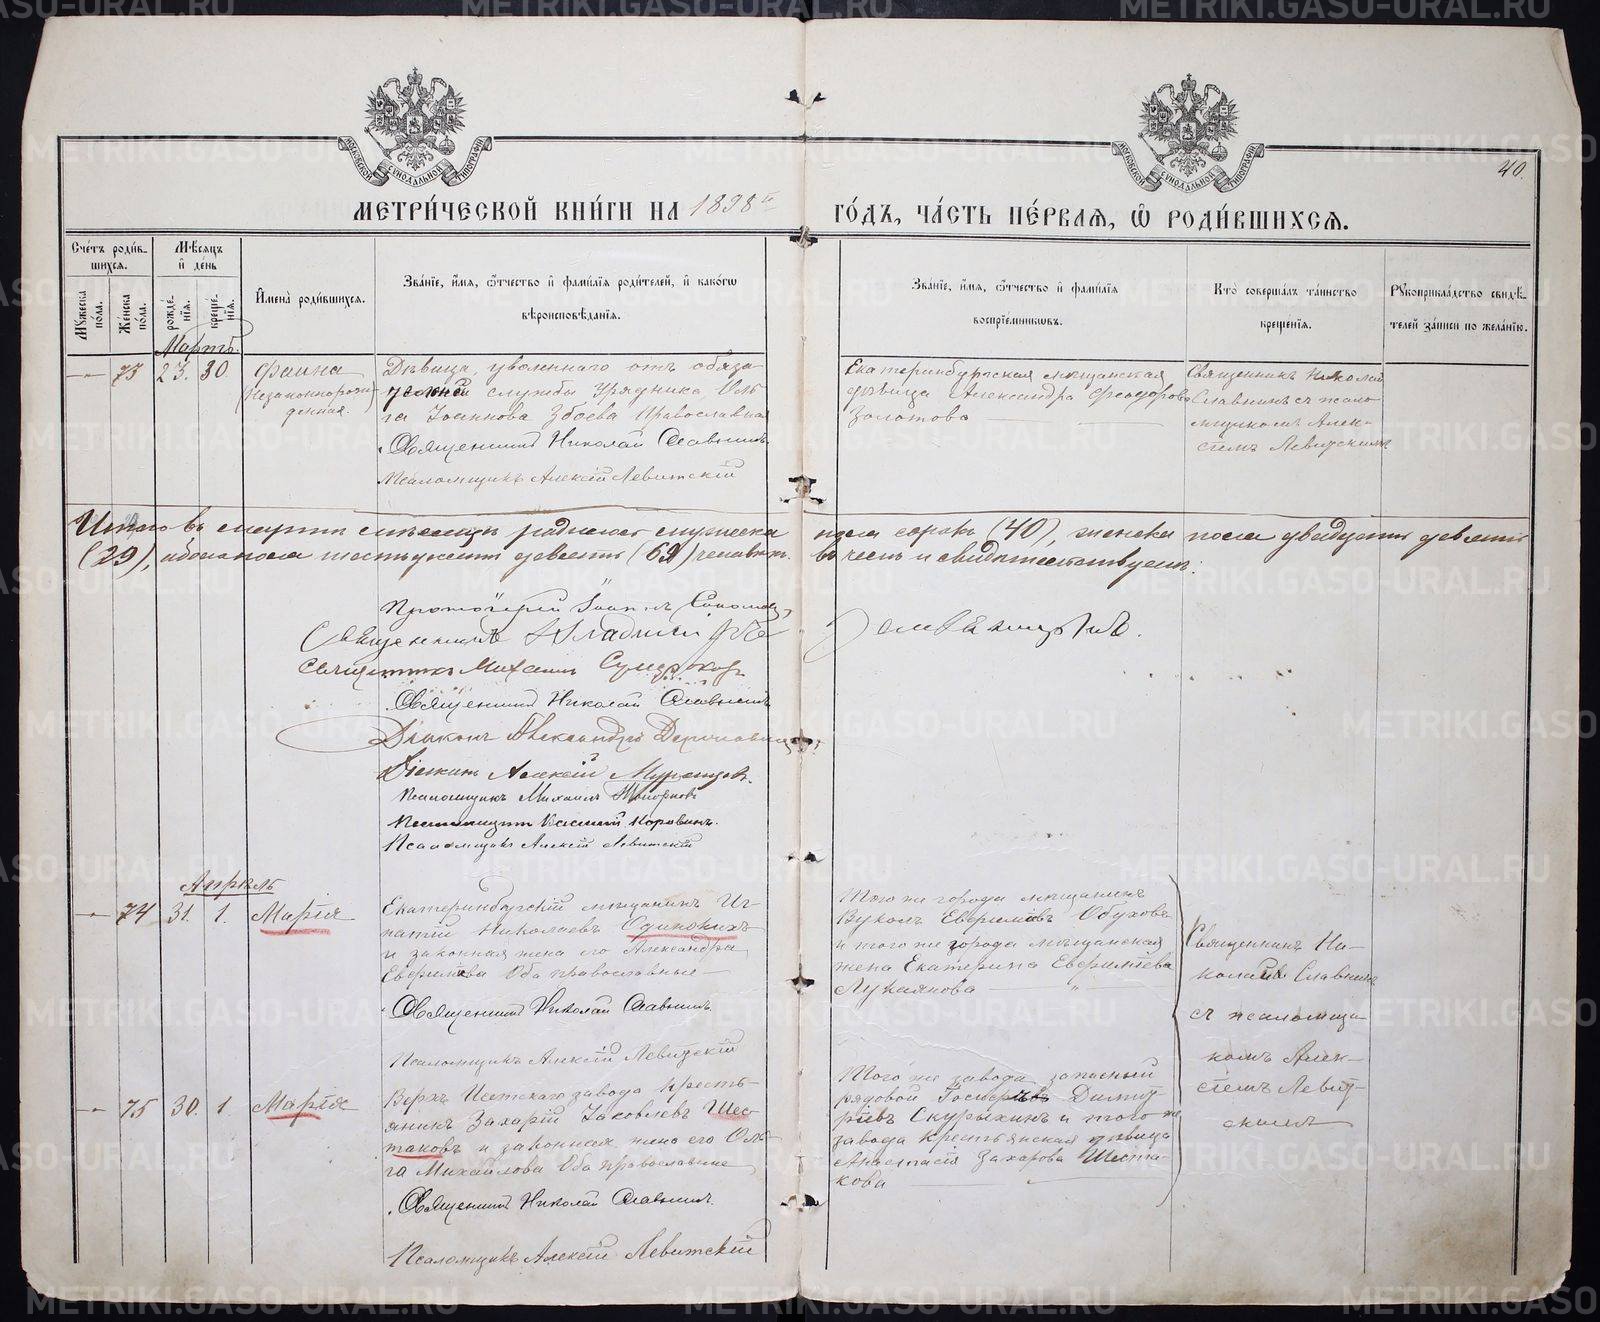 40.
МЕТРИ́ЧЕСКОЙ КНИ́ГИ НА 1898й ГО́ДЪ, ЧА́СТЬ ПЕ́РВАЯ, Ѽ РОДИ́ВШИХСЯ.
МОСКОВСКОЙ СѴНОДАЛЬНОЙ ТИПОГРАФІИ
МОСКОВСКОЙ СѴНОДАЛЬНОЙ ТИПОГРАФІИ
Сче́тъ роди́в-
шихся.
Мѣ́сяцъ
и҆ де́нь
Мꙋ́жеска по́ла.
Же́нска по́ла.
рожде́нїя.
креще́нїя.
И҆мена̀ роди́вшихся.
Зва́нїе, и҆́мя, ѻ҆́тчество и҆ фами́лїя роди́телей, и҆ како́гѡ
вѣроисповѣ́данїя.
Зва́нїе, и҆́мя, ѻ҆́тчество и҆ фами́лїя
воспрїе́мниковъ.
Кто̀ соверша́лъ та́инство
креще́нїя.
Рꙋкоприкла́дство свидѣ́-
телей за́писи по жела́нїю.
Мартъ.
73 23. 30. Фаина
(Незаконнорож-
денная.
Дѣвица, уволеннаго отъ обяза-
тельной службы Урядника, Оль-
га Іоаннова Збоева Православная
Священникъ Николай Славнинъ.
Псаломщикъ Алексій Левитскій
Екатеринбургская мѣщанская
дѣвица Александра Феодорова
Золотова
Священникъ Николай
Славнинъ съ псало-
мщикомъ Алек-
сѣемъ Левитскимъ
Итого въ мартѣ мѣсяцѣ родилось мужеска пола сорокъ (40), женска пола двадцать девять
(29), обоего пола шестьдесятъ девять (69) человѣкъ. въ чемъ и свидѣтельствуемъ:
Протоіерей Іоаннъ
Священникъ
Священникъ Михаилъ
Священникъ Николай Славнинъ
Діаконъ Александръ
Діаконъ Алексій
Псаломщикъ Михаилъ
Псаломщикъ Василій Коровинъ.
Псаломщикъ Алексій Левитскій
Апрѣль
74 31. 1. Марія
Екатеринбургскій мѣщанинъ Иг-
натій Николаевъ Одинокихъ
и законная жена его Александра
Евфиміева Оба православные
Священникъ Николай Славнинъ.
Псаломщикъ Алексій Левитскій
Того же города мѣщанинъ
Вуколъ Евфиміевъ Обуховъ
и того же города мѣщанская
жена Екатерина Евфиміева
Лукоянова
Священникъ Ни-
колай Славнинъ
съ псаломщи-
комъ Алек-
сѣемъ Левит-
скимъ
75 30. 1. Марія
Верхъ Исетскаго завода кресть-
янинъ Захарій Іаковлевъ Шес-
таковъ и законная жена его Оль-
га Михайлова Оба православные
Священникъ Николай Славнинъ.
Псаломщикъ Алексій Левитскій
Того же завода запасный
рядовой Димит-
ріевъ Скурыхинъ и того же
завода крестьянская дѣвица
Анастасія Захарова Шеста-
кова
METRIKI.GASO-URAL.RU